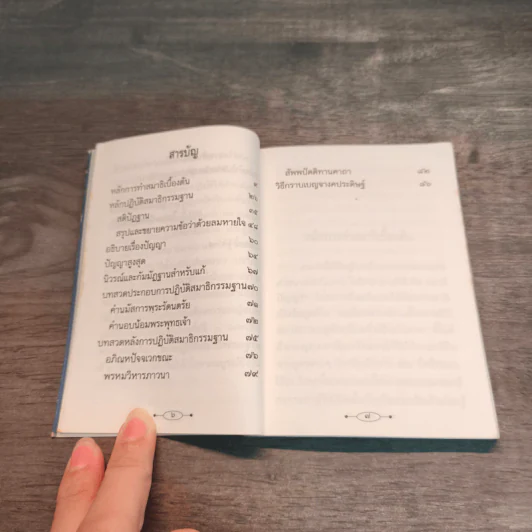 สารบัญ
หลักการทำสมาธิเบื้องต้น ๑
หลักปฏิบัติสมาธิกรรมฐาน ๒๖
สติปัฏฐาน ๓๕
สรุปและขยายความข้อว่าด้วยลมหายใจ ๔๘
อธิบายเรื่องปัญญา ๖๐
ปัญญาสูงสุด ๖๔
นิวรณ์และกัมมัฏฐานสำหรับแก้ ๖๗
บทสวดประกอบการปฏิบัติสมาธิกรรมฐาน ๗๐
คำนมัสการพระรัตนตรัย ๗๑
คำนอบน้อมพระพุทธเจ้า ๗๒
บทสวดหลังการปฏิบัติสมาธิกรรมฐาน ๗๕
อภิณหปัจจเวกขณะ ๗๖
พรหมวิหารภาวนา ๗๙
๖
สัพพปัตติทานคาถา ๘๒
วิธีกราบเบญจางคประดิษฐ์ ๘๖
๗